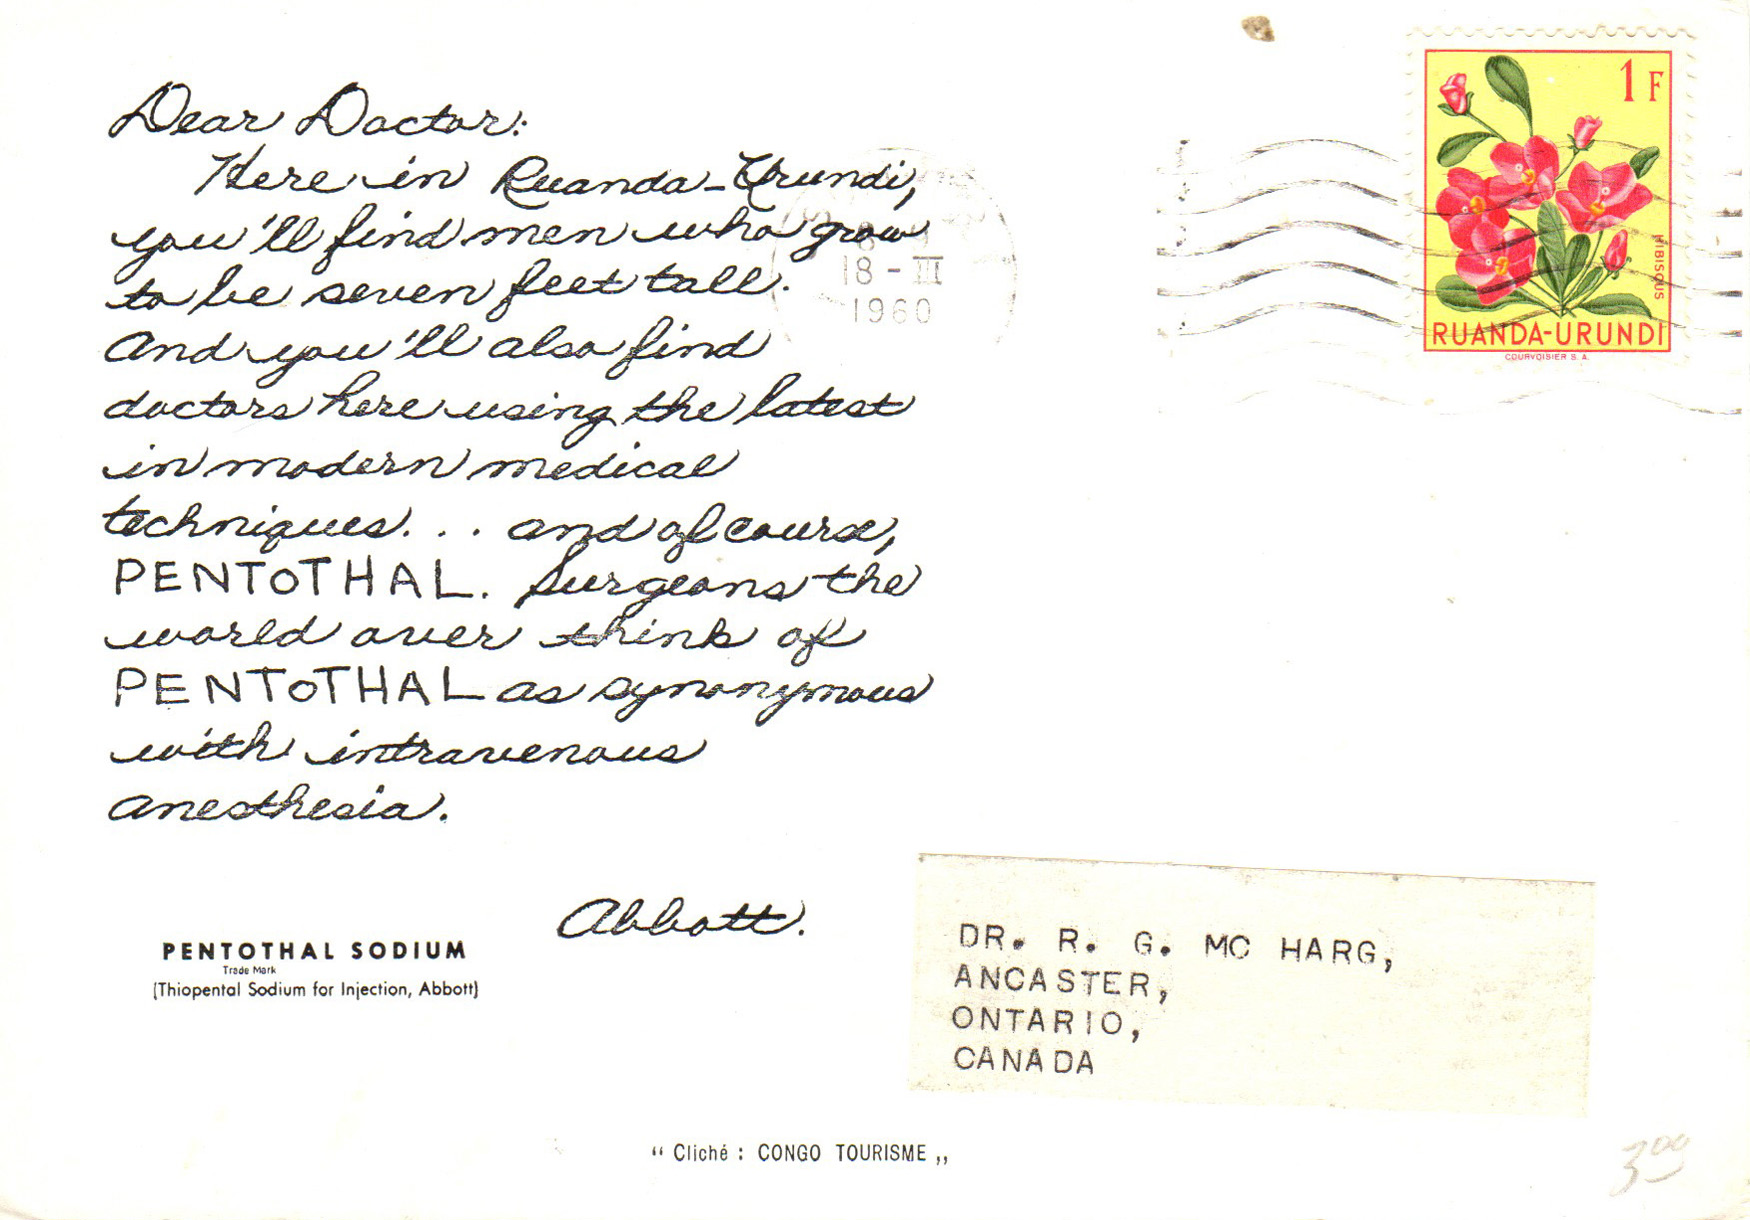 Dear Doctor:
Here in Ruanda-Urundi,
you'll find men who grow
to be seven feet tall.
And you'll also find
doctors here using the latest
in modern medical
techniques... and of course,
PENTOTHAL. Surgeons the
world over think of
PENTOTHAL as synonymous
with intravenous
anesthesia.
Abbott.
PENTOTHAL SODIUM
Trade Mark
(Thiopental Sodium for Injection, Abbott)
18-III
1960
1 F
HIBISCUS
RUANDA-URUNDI
COURVOISIER S. A.
DR. R. G. MC HARG,
ANCASTER,
ONTARIO,
CANADA
“ Cliché : CONGO TOURISME „
3.00